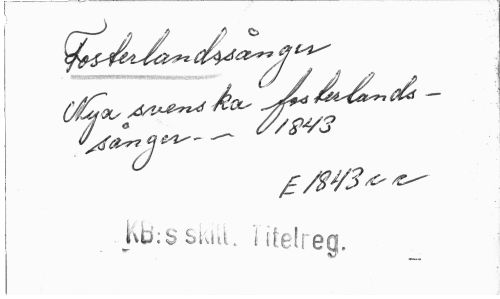 Fosterlandssånger
Nya svenska fosterlands-
sånger-- 1843
E 1843 c c
KB:s skill. Titelreg.